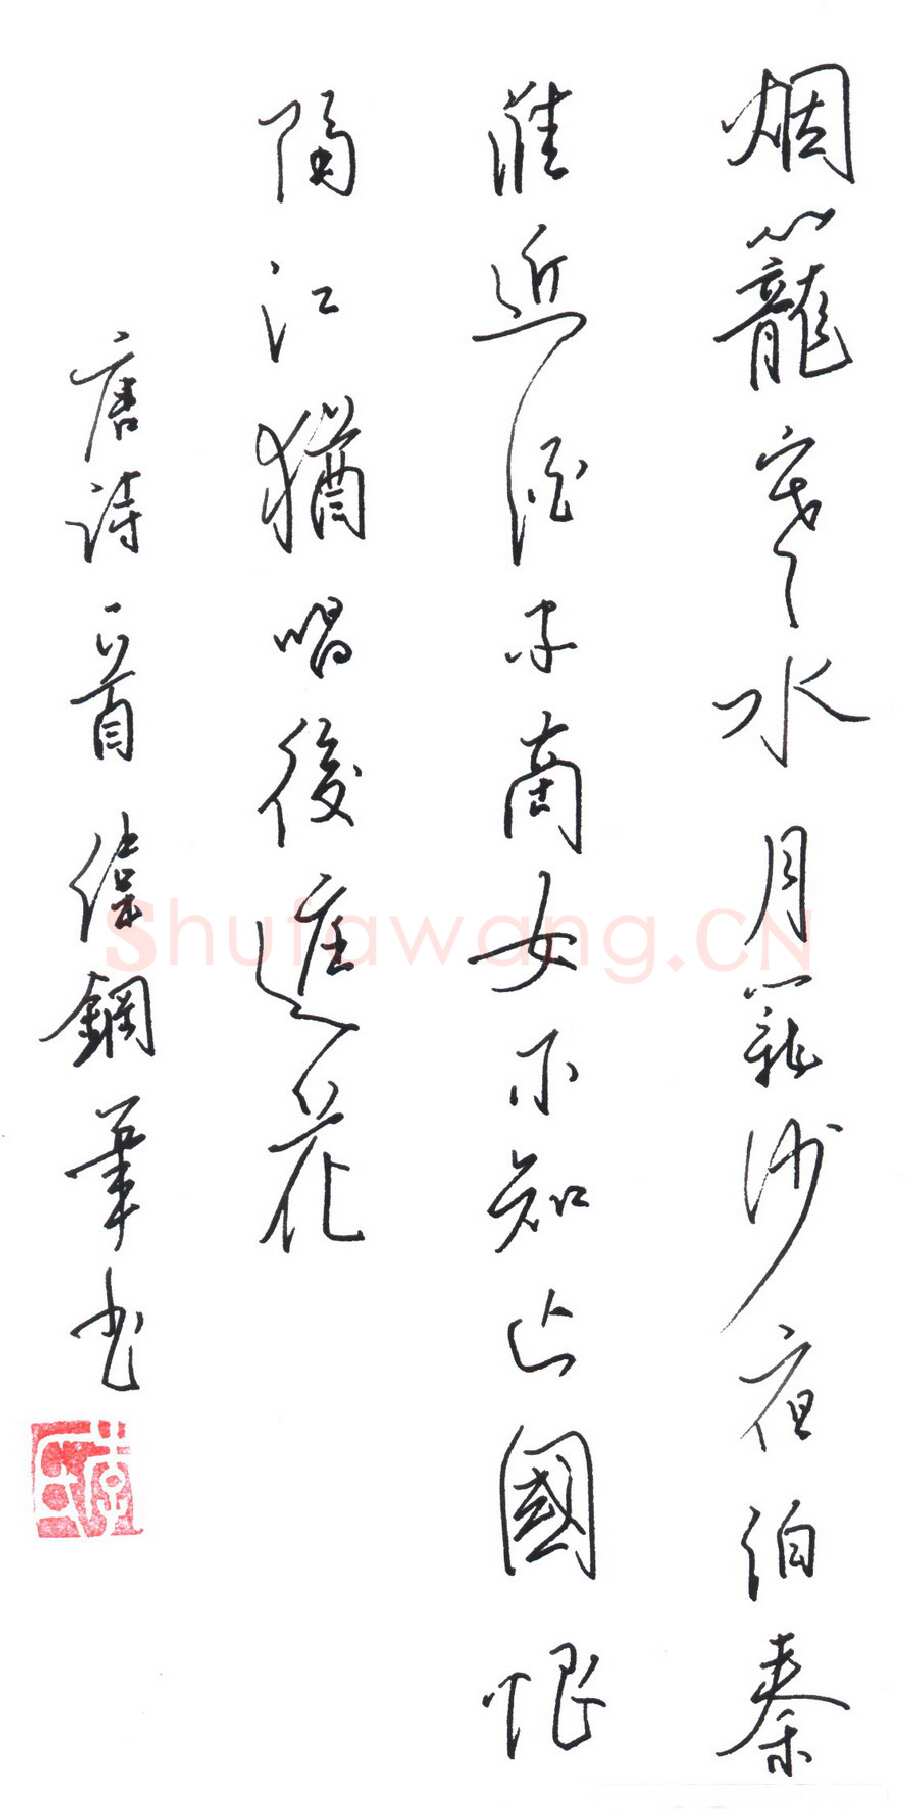 烟籠寒水月籠沙夜泊秦
淮近酒家商女不知亡國恨
隔江猶唱後庭花
唐诗一首偉鋼筆书
Shufawang.CN